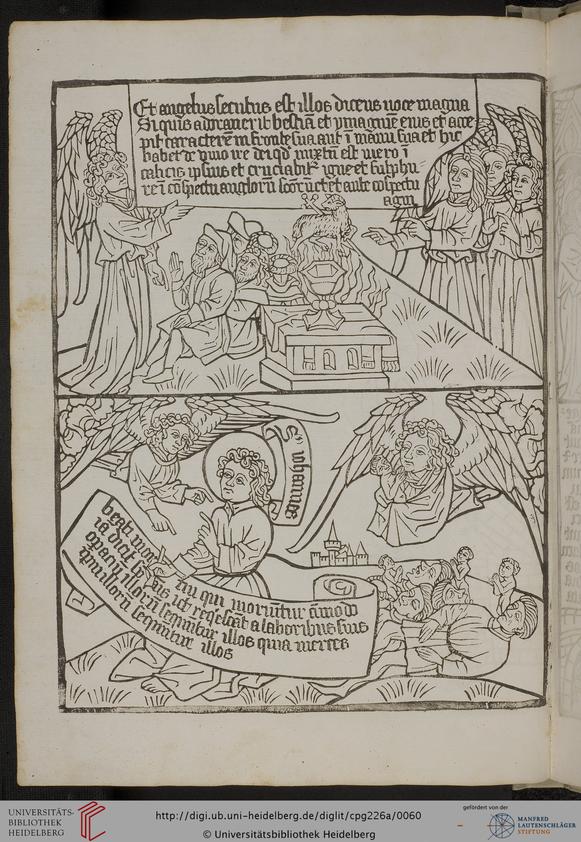 Et angelus secutus est illos dicens uoce magna
Si quis adoraverit bestiā et ymaginē eius et acce
pit caracterem in fronte sua aut ī manu sua et hic
habet de vino ire dei qd mixtū est mero ī
calicis ipsius et cruciabit igne et sulphu
re ī cōspectu anglorū scōrū et ante cōspectu
agni
S Iohannes
beati mortui qui moriūtur
iā dicit spūs ut reqescāt a laboribus suis
opa eni illorū sequūtur illos quia merces
illorū sequūtur illos
UNIVERSITÄTS-
BIBLIOTHEK
HEIDELBERG
http://digi.ub.uni-heidelberg.de/diglit/cpg226a/0060
© Universitätsbibliothek Heidelberg
gefördert von der
MANFRED
LAUTENSCHLÄGER
STIFTUNG